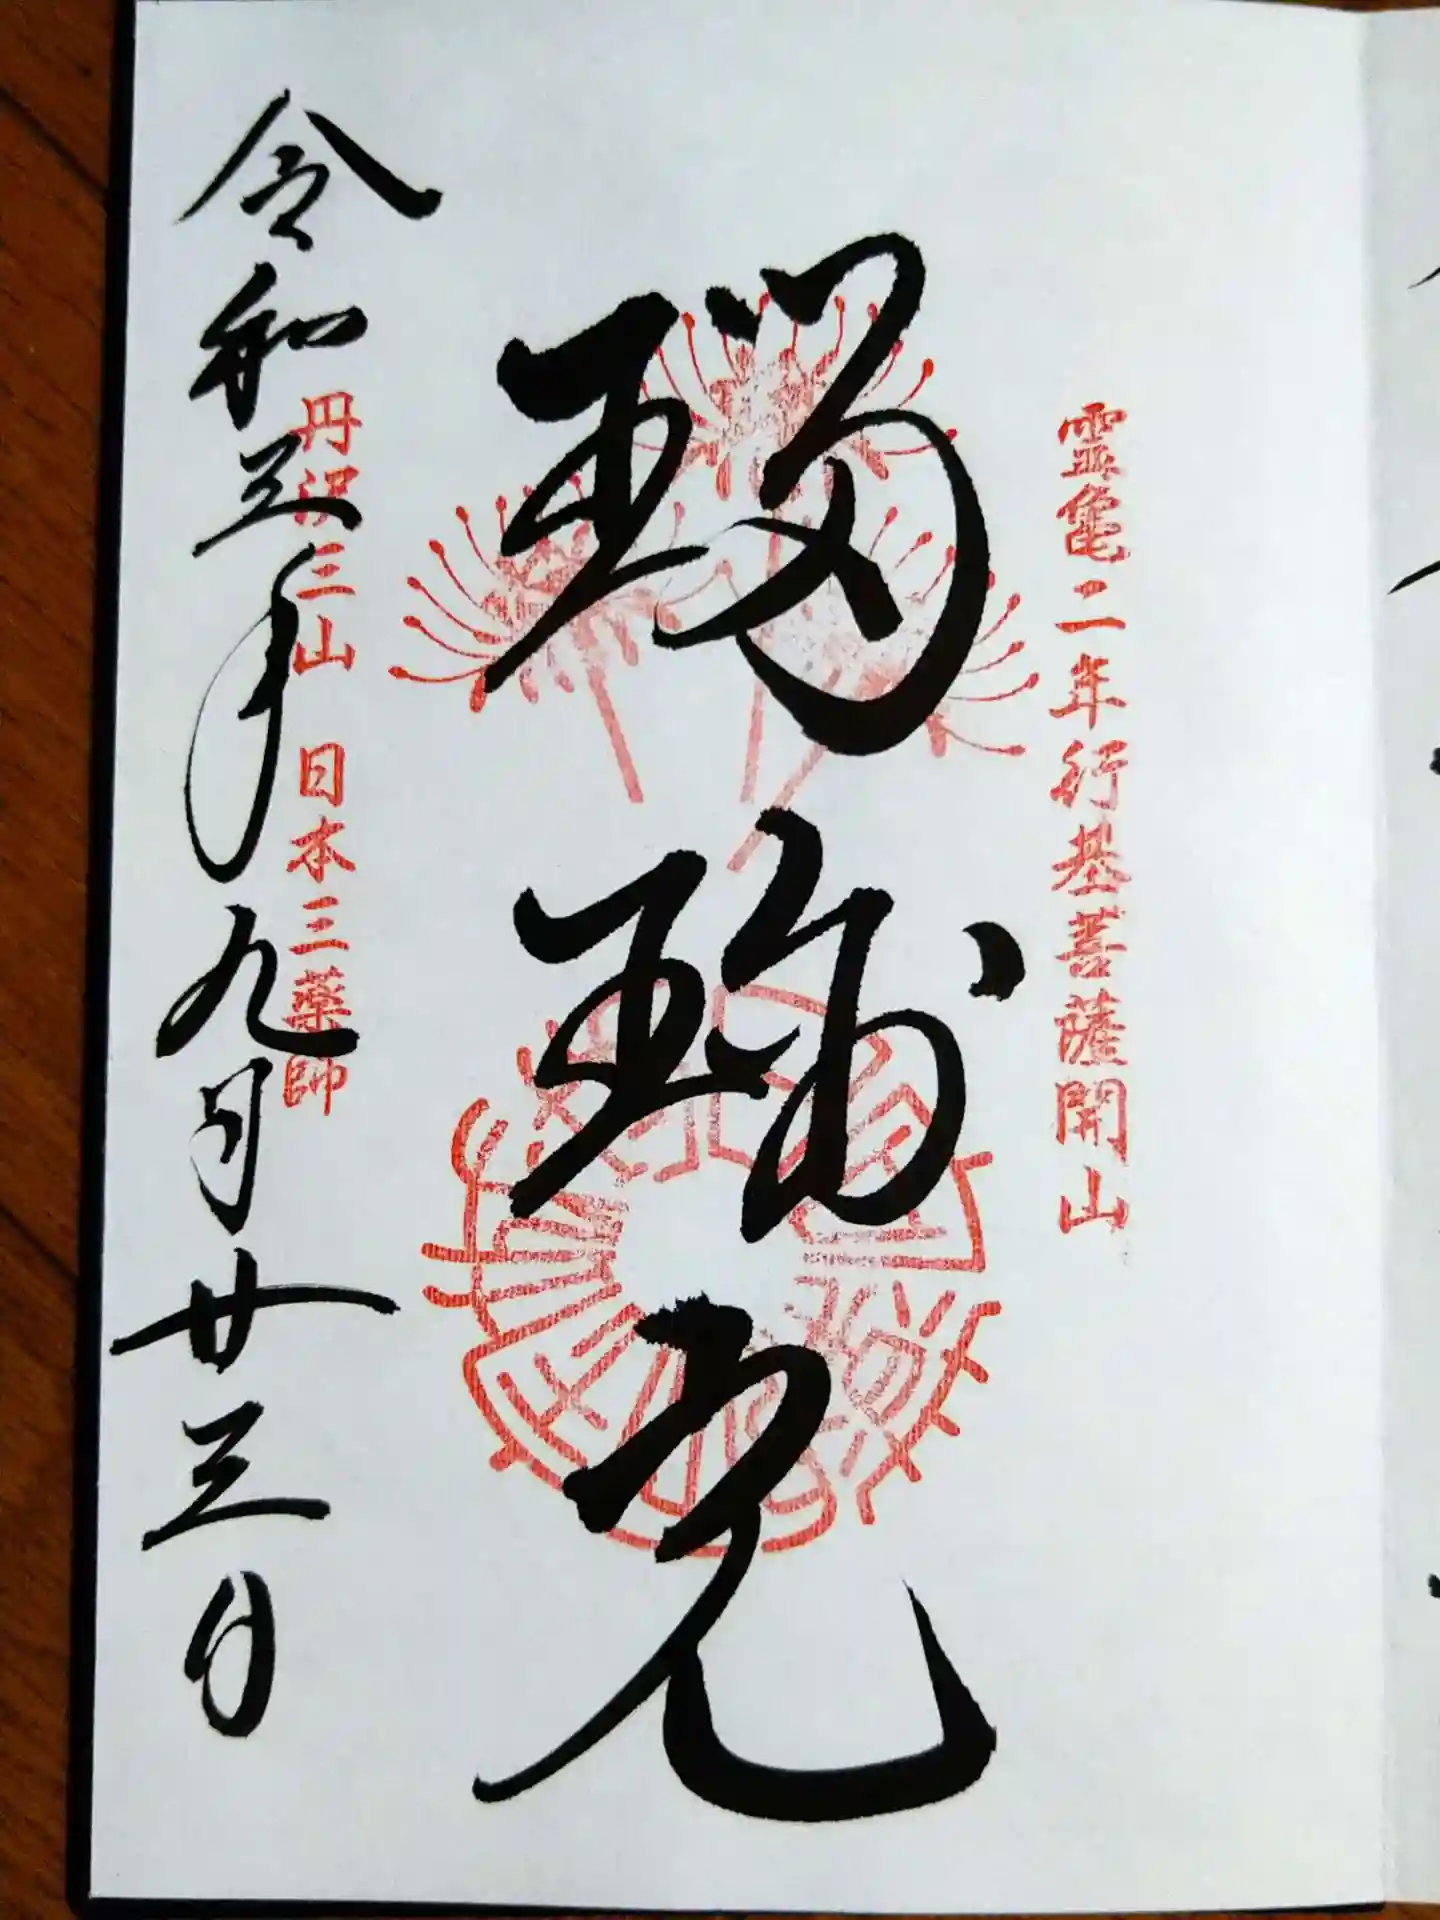 霊亀二年行基菩薩開山
瑠璃光
丹沢三山 日本三薬師
令和三年九月廿三日